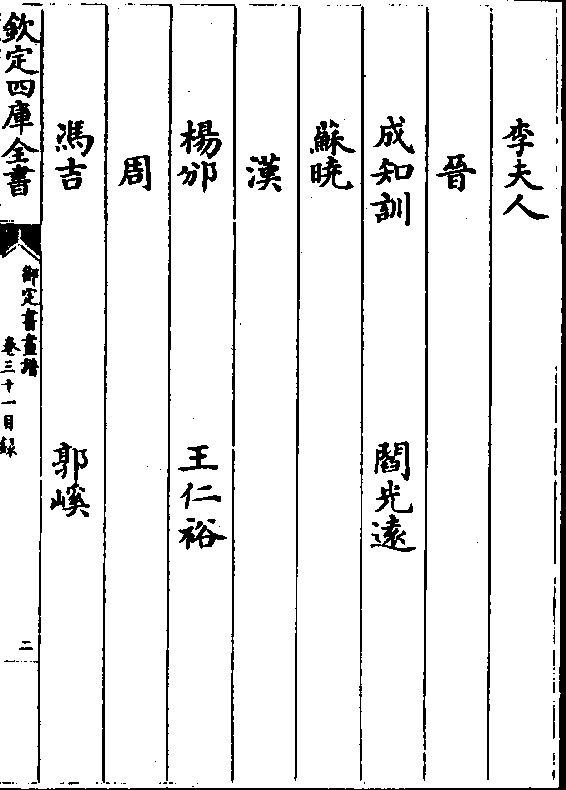 李夫人
晉
成知訓 閻光遠
蘇曉
漢
楊邠 王仁裕
周
馮吉 郭嵠
欽定四庫全書
御定書畫譜
卷三十一目録
二